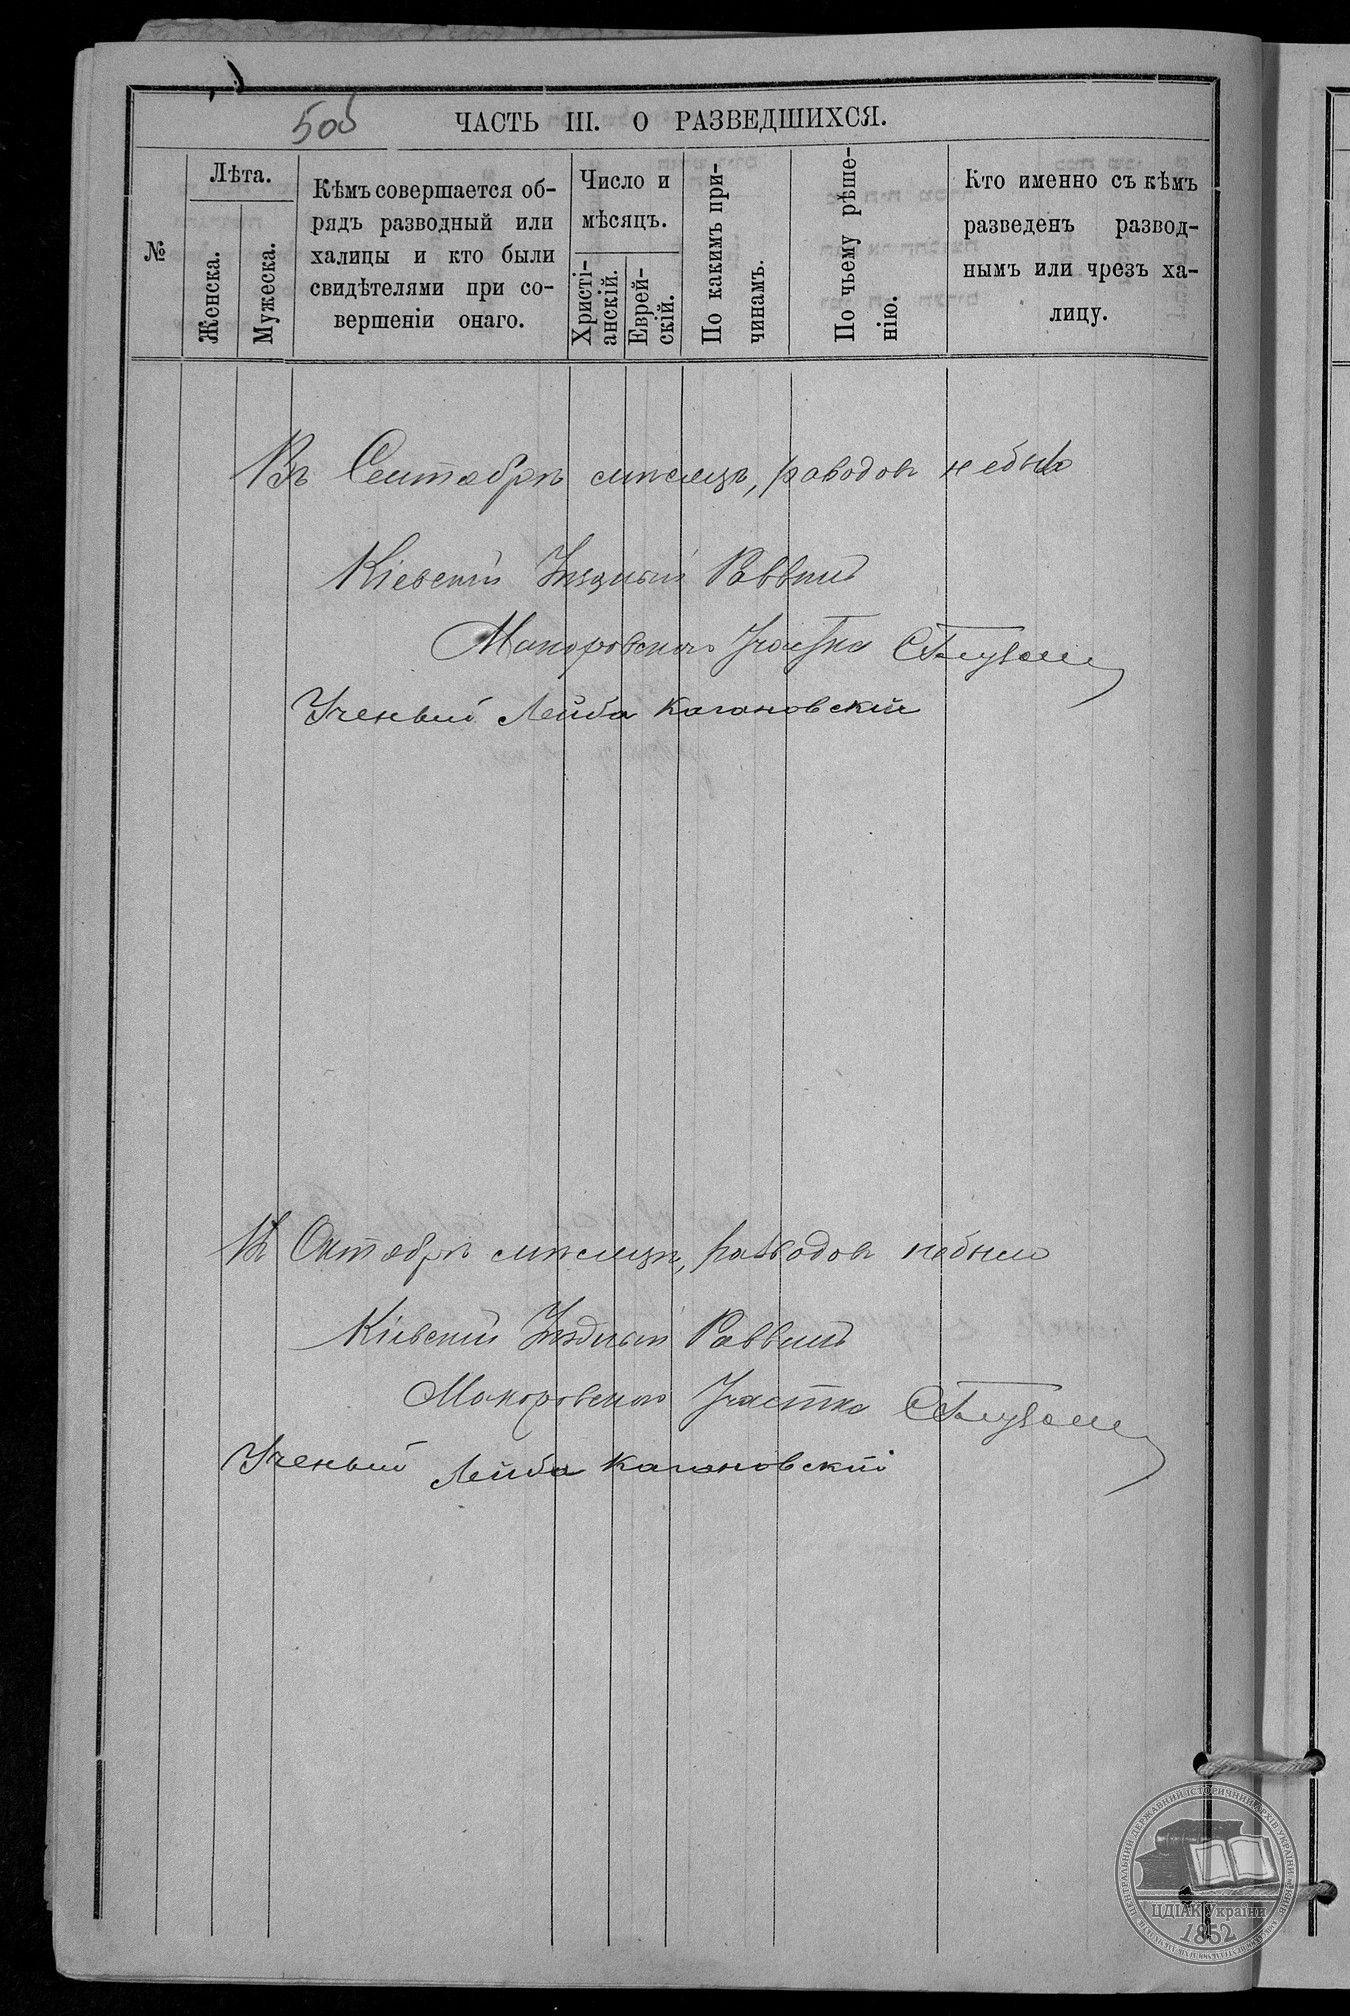 ЧАСТЬ III. О РАЗВЕДШИХСЯ.
№
Лѣта.
Женска.
Мужеска.
Кѣмъ совершается об-
рядъ разводный или
халицы и кто были
свидѣтелями при со-
вершеніи онаго.
Число и
мѣсяцъ.
Христі-
анскій.
Еврей-
скій.
По какимъ при-
чинамъ.
По чьему рѣше-
нію.
Кто именно съ кѣмъ
разведенъ развод-
нымъ или чрезъ ха-
лицу.
Въ Сентябрѣ мѣсяцѣ, разводовъ небыло
Кіевскій Уѣздный Раввинъ
Макаровскаго Участка
Ученый Лейба Кагановскій
Въ Октябрѣ мѣсяцѣ, разводовъ небыло
Кіевскій Уѣздный Раввинъ
Макаровскаго Участка
Ученый Лейба Кагановскій
ЦЕНТРАЛЬНИЙ ДЕРЖАВНИЙ ІСТОРИЧНИЙ АРХІВ УКРАЇНИ
ЦДІАК України
1852